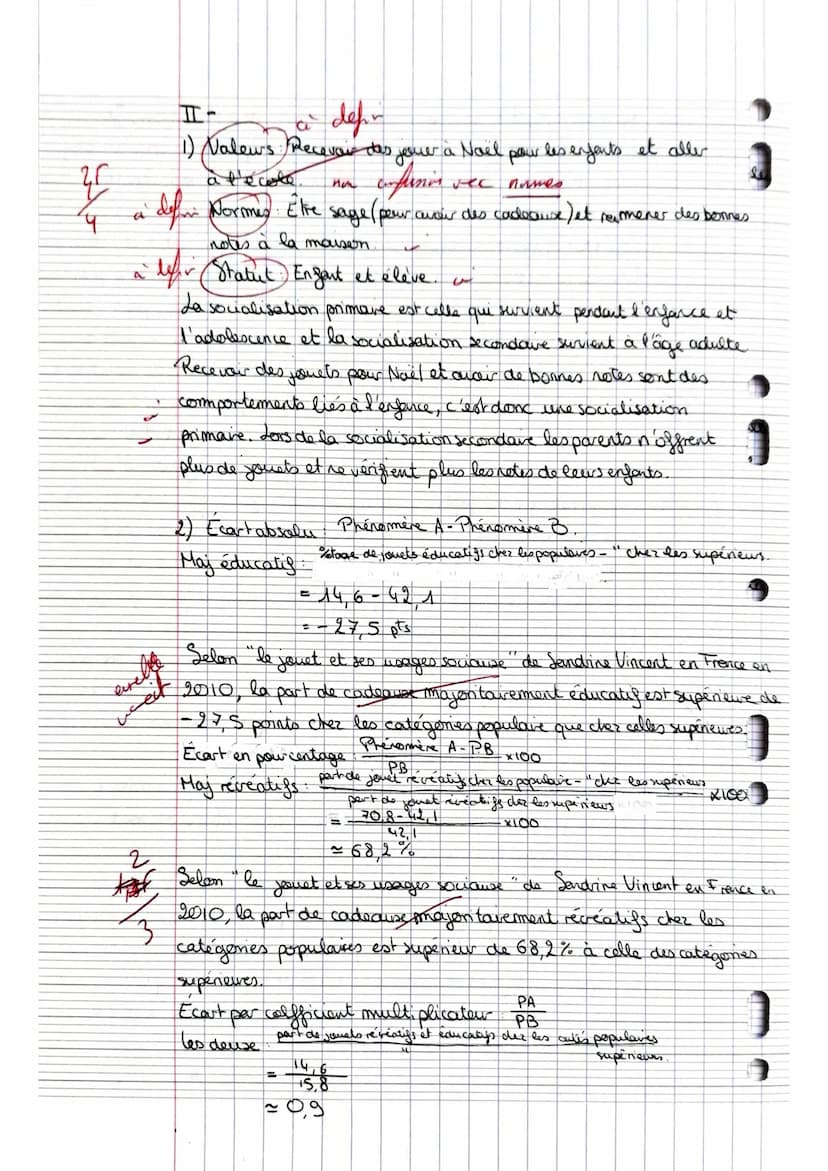 II-
à défir
1) Valeurs : Recevoir des jouer à Noël pour les enfants et aller
à l'école. non confusion vec normes
4
à défini Normes : Être sage (pour avoir des cadeaux) et ramener des bonnes
notes à la maison.
à défir Statut : Enfant et élève.
La socialisation primaire est celle qui survient pendant l'enfance et
l'adolescence et la socialisation secondaire survient à l'âge adulte
Recevoir des jouets pour Noël et avoir de bonnes notes sont des
comportements liés à l'enfance, c'est donc une socialisation
primaire. Lors de la socialisation secondaire les parents n'offrent
plus de jouets et ne vérifient plus les notes de leurs enfants.
2) Écart absolu : Phénomère A - Phénomère B.
Maj éducatif : %tage de jouets éducatifs chez les populaires - " chez les supérieurs.
= 14,6 - 42,1
= - 27,5 pts
Selon "le jouet et ses usages sociaux" de Sandrine Vincent en France en
2010, la part de cadeaux majoritairement éducatif est supérieure de
-27,5 points chez les catégories populaire que chez celles supérieures.
Écart en pourcentage : Phénomère A - PB / PB x100
Maj récréatifs : part de jouet récréatifs chez les populaire - " chez les supérieurs / part de jouet récréatifs chez les supérieurs x100
= 70,8 - 42,1 / 42,1 x100
≈ 68,2 %
2
3
Selon "le jouet et ses usages sociaux" de Sandrine Vincent en France en
2010, la part de cadeaux majoritairement récréatifs chez les
catégories populaires est supérieur de 68,2 % à celle des catégories
supérieures.
Écart par coefficient multiplicateur : PA / PB
les deux : part de jouets récréatifs et éducatifs chez les catés populaires / " supérieurs.
= 14,6 / 15,8
≈ 0,9